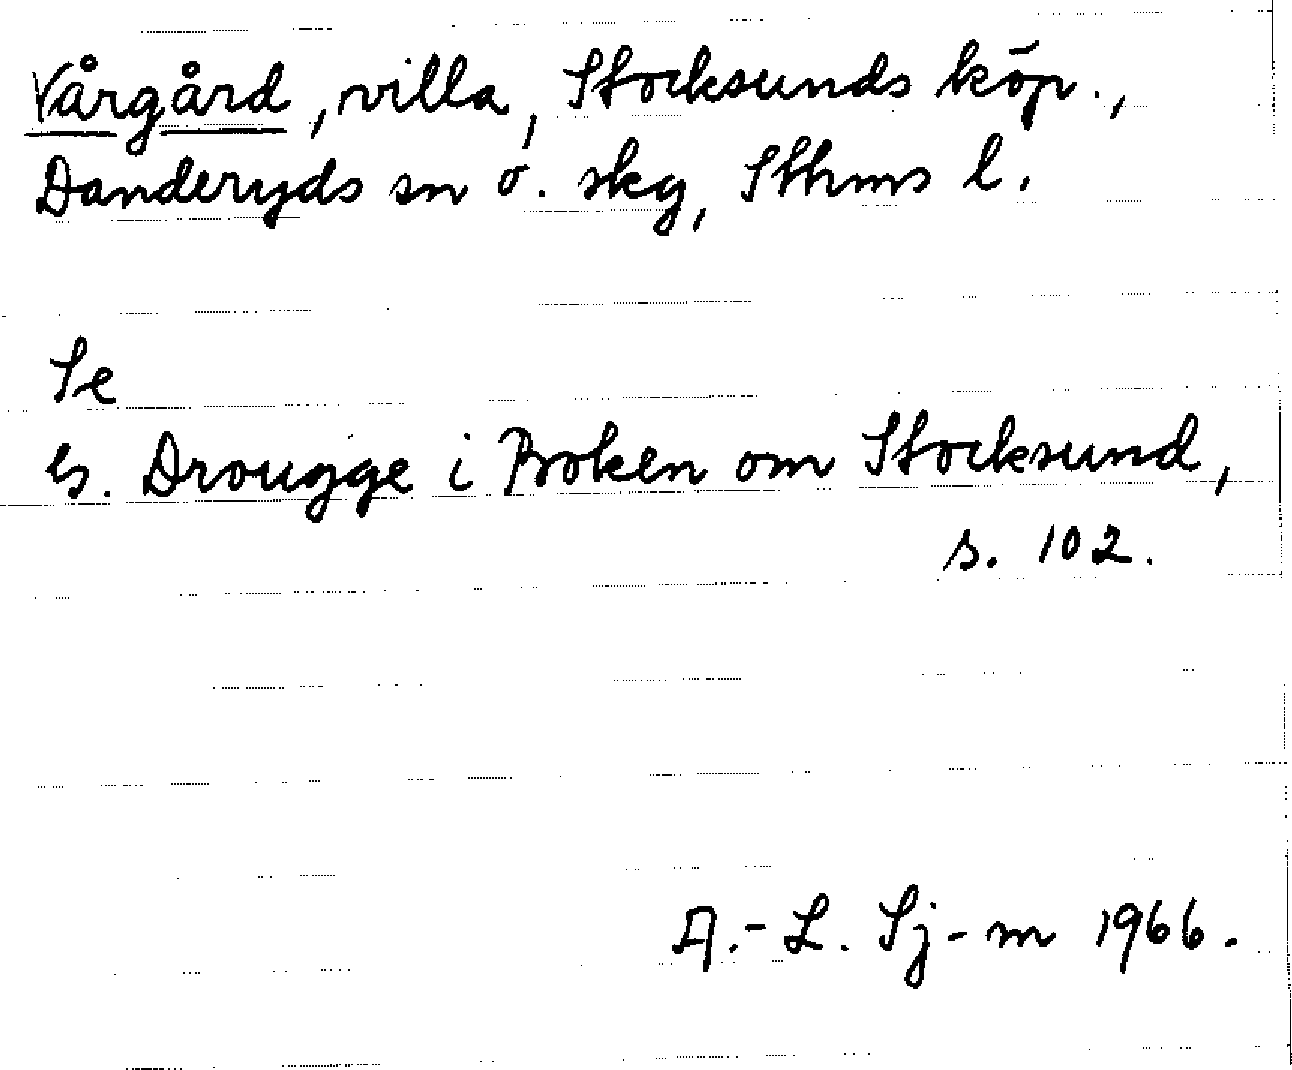 Vårgård, villa, Stocksunds köp.,
Danderyds sn o. skg, Sthms l.
Se
G. Drougge i Boken om Stocksund,
s. 102.
A.-L. Sj-m 1966.